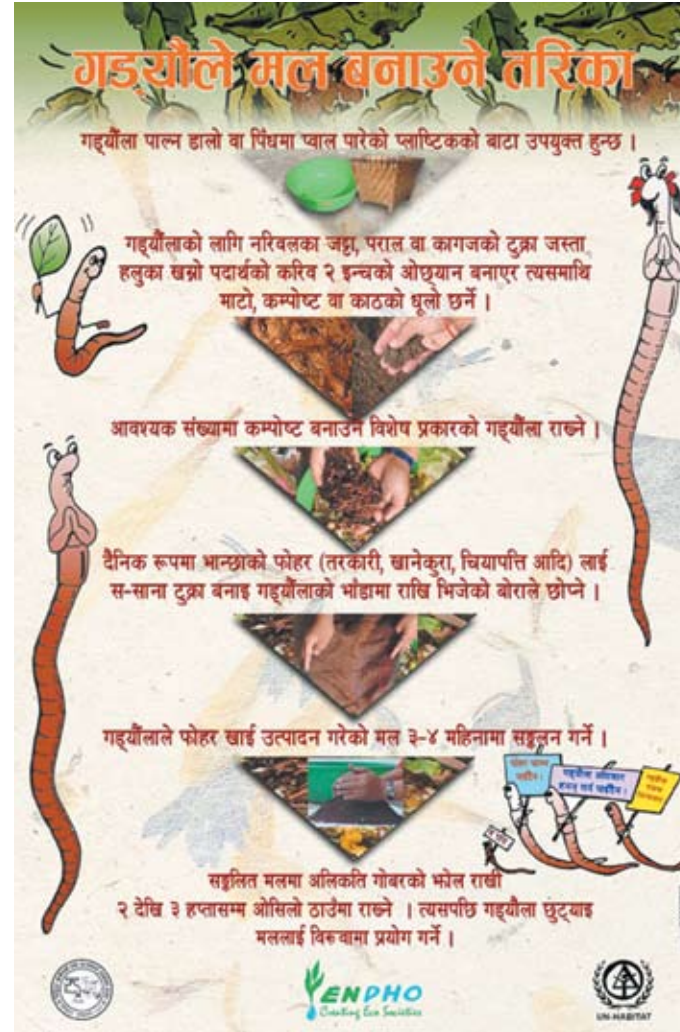 गड्यौंले मल बनाउने तरिका
गड्यौंला पाल्न डालो वा पिंधमा प्वाल पारेको प्लाष्टिकको बाटा उपयुक्त हुन्छ ।
गड्यौंलाको लागि नरिवलका जट्टा, पराल वा कागजको टुक्रा जस्ता
हलुका खस्रो पदार्थको करिव २ इन्चको ओछ्यान बनाएर त्यसमाथि
माटो, कम्पोष्ट वा काठको धूलो छर्ने ।
आवश्यक संख्यामा कम्पोष्ट बनाउने विशेष प्रकारको गड्यौंला राख्ने ।
दैनिक रूपमा भान्छाको फोहर (तरकारी, खानेकुरा, चियापत्ति आदि) लाई
स-साना टुक्रा बनाइ गड्यौंलाको भाँडामा राखि भिजेको बोराले छोप्ने ।
गड्यौंलाले फोहर खाई उत्पादन गरेको मल ३-४ महिनामा सङ्कलन गर्ने ।
गड्यौंला अधिकार
हनन् गर्न पाईँदैन ।
सङ्कलित मलमा अलिकति गोबरको झोल राखी
२ देखि ३ हप्तासम्म ओसिलो ठाउँमा राख्ने । त्यसपछि गड्यौंला छुट्याइ
मललाई विरूवामा प्रयोग गर्ने ।
ENPHO
Creating Eco Societies
UN-HABITAT